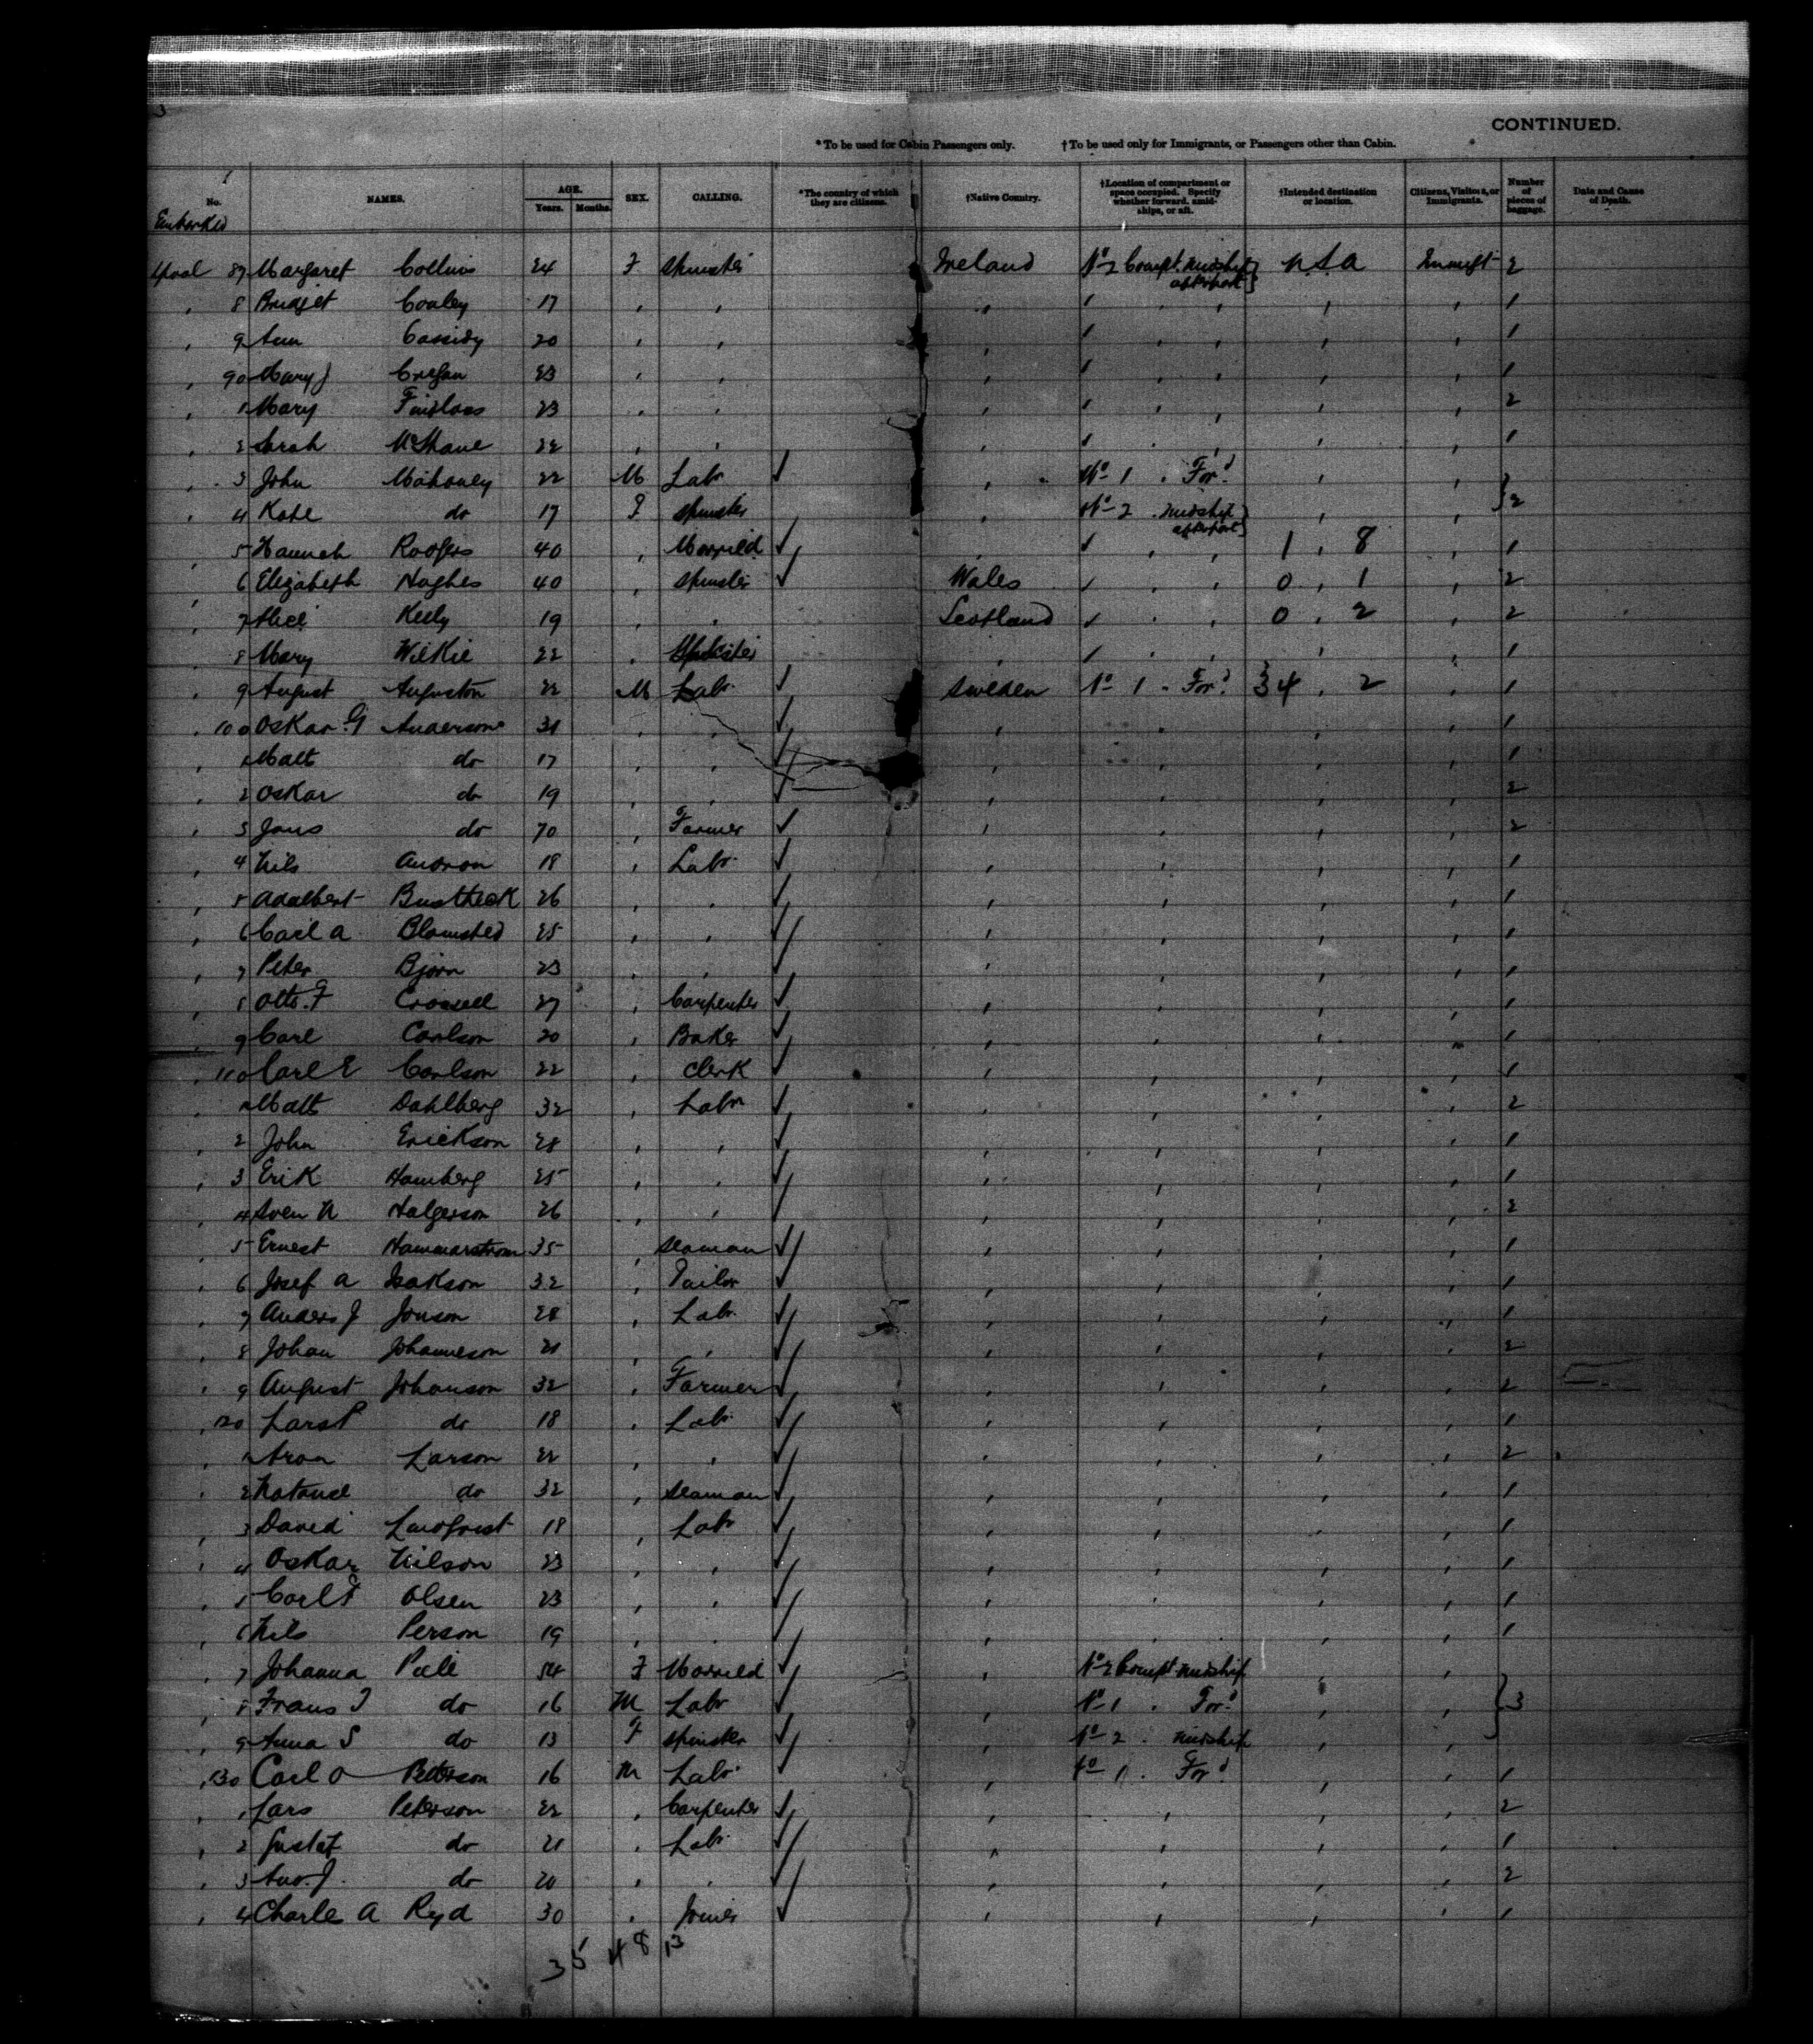 3
CONTINUED.
*To be used for Cabin Passengers only. †To be used only for Immigrants, or Passengers other than Cabin.
No. NAMES. AGE. Years. Months. SEX. CALLING. *The country of which they are citizens. †Native Country. †Location of compartment or space occupied. Specify whether forward, amidships, or aft. †Intended destination or location. Citizens, Visitors, or Immigrants. Number of pieces of baggage. Date and Cause of Death.
Embarked
Lpool 87 Margaret Collins 24 F Spinster Ireland No 2 Compt. midship aftpart U.S.A Immigt 2
8 Bridget Conley 17 1
9 Ann Cassidy 20 1
90 Mary J Cregan 23 1
1 Mary 23 2
2 Sarah McShane 22 1
3 John Mahoney 22 M Labr ✓ No 1 Ford
4 Kate do 17 F Spinster No 2 midship aftpart } 2
5 Hannah Rodgers 40 Married ✓ 1 8 1
6 Elizabeth Hughes 40 Spinster ✓ Wales 0 1 2
7 Alice Keely 19 Scotland 0 2 2
8 Mary Wilkie 22 Spinster 1
9 August Auguston 22 M Labr. ✓ Sweden No 1 Ford 34 2 1
100 Oskar G Anderson 31 ✓ 1
1 Matt do 17 ✓ 1
2 Oskar do 19 ✓ 2
3 Jons do 70 Farmer ✓ 2
4 Nils 18 Labr. ✓ 1
5 Adalbert 26 ✓ 1
6 Carl A Blomsted 25 ✓ 1
7 Peter Bjorn 23 ✓ 1
8 Otto F 27 Carpenter ✓ 1
9 Carl Carlson 20 Baker ✓ 1
110 Carl E Carlson 22 Clerk ✓ 1
1 Matt Dahlberg 32 Labr ✓ 2
2 John Erickson 28 ✓ 1
3 Erik Hamberg 25 ✓ 1
4 Sven N Halgerson 26 ✓ 2
5 Ernest Hammarstrom 35 Seaman ✓ 1
6 Josef A Isakson 32 Tailor ✓ 1
7 Anders J Jonson 28 Labr. ✓ 1
8 Johan Johanneson 21 ✓ 2
9 August Johanson 32 Farmer ✓ 2
120 Lars P do 18 Labr. ✓ 1
1 Aron Larson 22 ✓ 2
2 do 32 Seaman ✓ 1
3 David Lindqvist 18 Labr ✓ 1
4 Oskar Nilson 23 ✓ 1
5 Carl Olsen 23 ✓ 1
6 Nils Person 19 ✓ 1
7 Johanna 54 F Married ✓ No 2 Compt midship
8 Frans J do 16 M Labr ✓ No 1 Ford } 3
9 Anna S do 13 F Spinster ✓ No 2 midship
130 Carl O Peterson 16 M Labr. ✓ No 1 Ford 1
1 Lars Peterson 22 Carpenter ✓ 2
2 Gustaf do 21 Labr. ✓ 1
3 do 20 ✓ 2
4 Charle A Ryd 30 Joiner ✓ 1
35 48 13